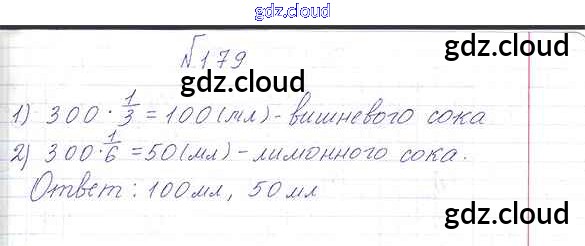 gdz.cloud
gdz.cloud
№179
gdz.cloud
1) 300 · 1/3 = 100 (мл) - вишневого сока
2) 300 · 1/6 = 50 (мл) - лимонного сока.
gdz.cloud
Ответ: 100 мл, 50 мл
gdz.cloud
gdz.cloud